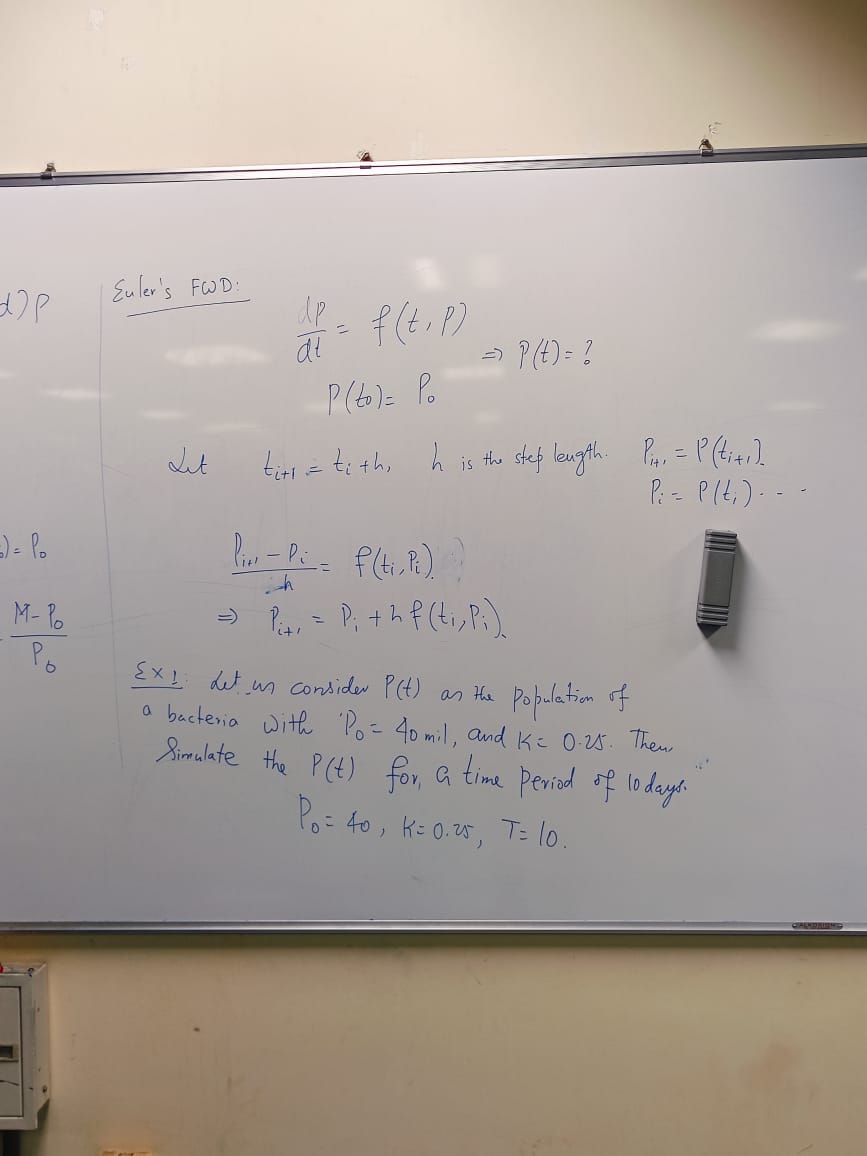 d)P
Euler's FWD:
dP/dt = f(t, P)
⇒ P(t) = ?
P(t₀) = P₀
Let t_{i+1} = t_i + h, h is the step length. P_{i+1} = P(t_{i+1})
P_i = P(t_i) - - -
)= P₀
(P_{i+1} - P_i)/h = f(t_i, P_i)
M-P₀/P₀
⇒ P_{i+1} = P_i + h f(t_i, P_i)
Ex 1: Let us consider P(t) as the population of
a bacteria with P₀ = 40 mil, and K = 0.25. Then
Simulate the P(t) for, a time period of 10 days.
P₀ = 40, K = 0.25, T = 10.